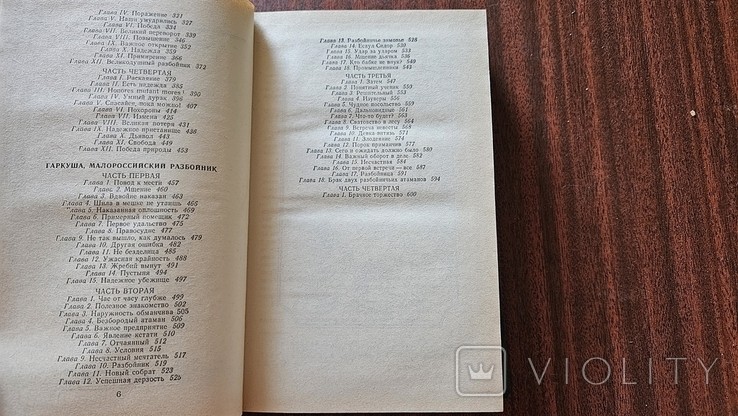 Глава IV. Поражение 321
Глава V. Наши умудрились 327
Глава VI. Победа 334
Глава VII. Великий переворот 339
Глава VIII. Повышение 346
Глава IX. Важное открытие 352
Глава X. Надежда 359
Глава XI. Примирение 366
Глава XII. Великодушный разбойник 372
ЧАСТЬ ЧЕТВЕРТАЯ
Глава I. Раскаяние 379
Глава II. Есть надежда 385
Глава III. Honores mutant mores 390
Глава IV. Умный дурак 399
Глава V. Спасайся, пока можно! 407
Глава VI. Похороны 414
Глава VII. Измена 425
Глава VIII. Великая потеря 431
Глава IX. Надежное пристанище 435
Глава X. Дьявол 443
Глава XI. Свобода 449
Глава XII. Победа природы 453
ГАРКУША, МАЛОРОССИЙСКИЙ РАЗБОЙНИК
ЧАСТЬ ПЕРВАЯ
Глава 1. Повод к мести 457
Глава 2. Мщение 460
Глава 3. Вдвойне наказан 463
Глава 4. Шила в мешке не утаишь 465
Глава 5. Наказанная оплошность 469
Глава 6. Примерный помещик 472
Глава 7. Первое удальство 475
Глава 8. Правосудие 477
Глава 9. Не так вышло, как думалось 479
Глава 10. Другая ошибка 482
Глава 11. Не безделица 485
Глава 12. Ужасная крайность 488
Глава 13. Жребий вынут 491
Глава 14. Пустыня 494
Глава 15. Надежное убежище 497
ЧАСТЬ ВТОРАЯ
Глава 1. Час от часу глубже 499
Глава 2. Полезное знакомство 502
Глава 3. Наружность обманчива 505
Глава 4. Безбородый атаман 506
Глава 5. Важное предприятие 509
Глава 6. Явление кстати 510
Глава 7. Отчаянный 512
Глава 8. Условия 515
Глава 9. Несчастный мечтатель 517
Глава 10. Разбойник 519
Глава 11. Новый собрат 523
Глава 12. Успешная дерзость 525
6
Глава 13. Разбойничье зимовье 528
Глава 14. Есаул Сидор 530
Глава 15. Удар за ударом 533
Глава 16. Мщение дьячка 536
Глава 17. Кто бабке не внук? 540
Глава 18. Промышленники 543
ЧАСТЬ ТРЕТЬЯ
Глава 1. Затеи 547
Глава 2. Понятный ученик 550
Глава 3. Решительный 553
Глава 4. Научеры 556
Глава 5. Чудное посольство 559
Глава 6. Дальновидные 561
Глава 7. Что-то будет? 563
Глава 8. Сватовство в лесу 564
Глава 9. Встреча невесты 568
Глава 10. Девка-витязь 571
Глава 11. Злодеяние 574
Глава 12. Порок приманчив 577
Глава 13. Сего и ожидать должно было 580
Глава 14. Важный оборот в деле 583
Глава 15. Несчастная 585
Глава 16. От первой встреча — все 587
Глава 17. Разбойница 591
Глава 18. Брак двух разбойничьих атаманов 594
ЧАСТЬ ЧЕТВЕРТАЯ
Глава 1. Брачное торжество 600
VIOLITY